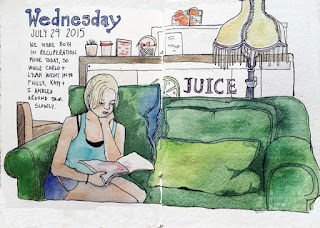 Wednesday
JULY 29 2015
WE WERE BOTH
IN RECUPERATION
MODE TODAY, SO
WHILE CARLO +
LYAM WENT INTO
PHILLY, KATY +
I AMBLED
AROUND TOWN.
SLOWLY.
JUICE